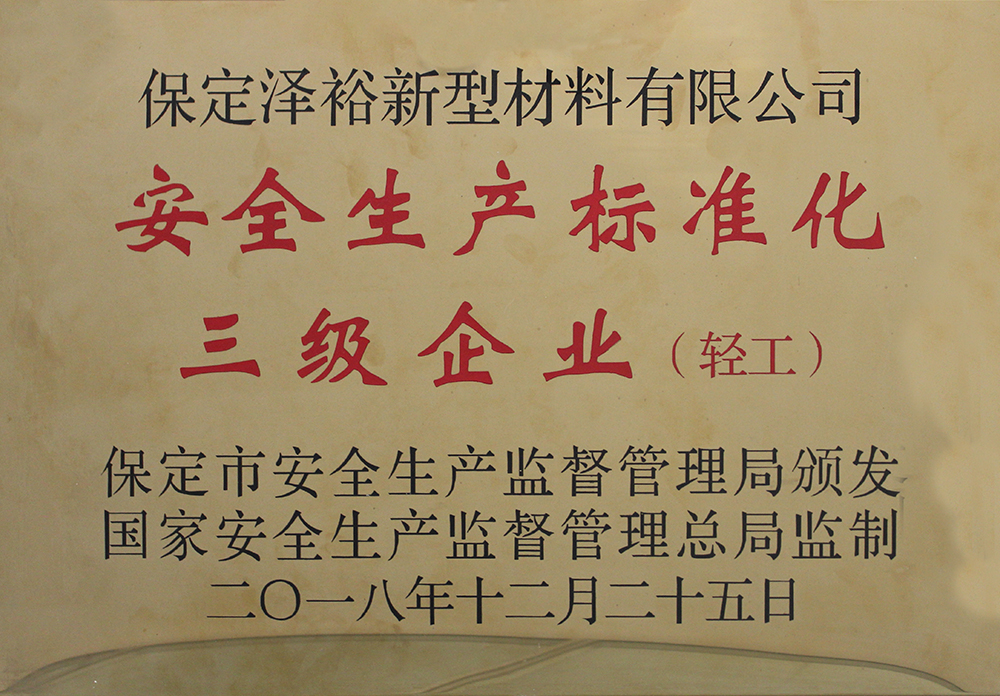 保定泽裕新型材料有限公司
安全生产标准化
三级企业（轻工）
保定市安全生产监督管理局颁发
国家安全生产监督管理总局监制
二〇一八年十二月二十五日